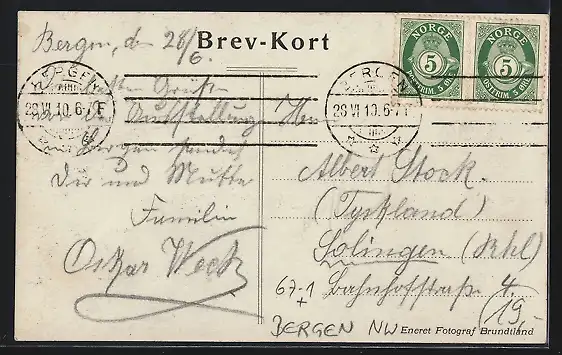 Bergen, den 28/6.
Brev-Kort
NORGE
5
POSTFRIM. 5 ØRE
NORGE
5
POSTFRIM. 5 ØRE
BERGEN
28 VI 10. 6-7 F
BERGEN
28 VI 10. 6-7 F
besten Grüße
Ausstellung
Bergen sendet
Dir und
Familie
Oskar Weck
Albert Stock.
(Tyskland)
Solingen (Rhl)
Bahnhofstraße 4.
67-1
19,-
BERGEN NW
Eneret Fotograf Brundtland